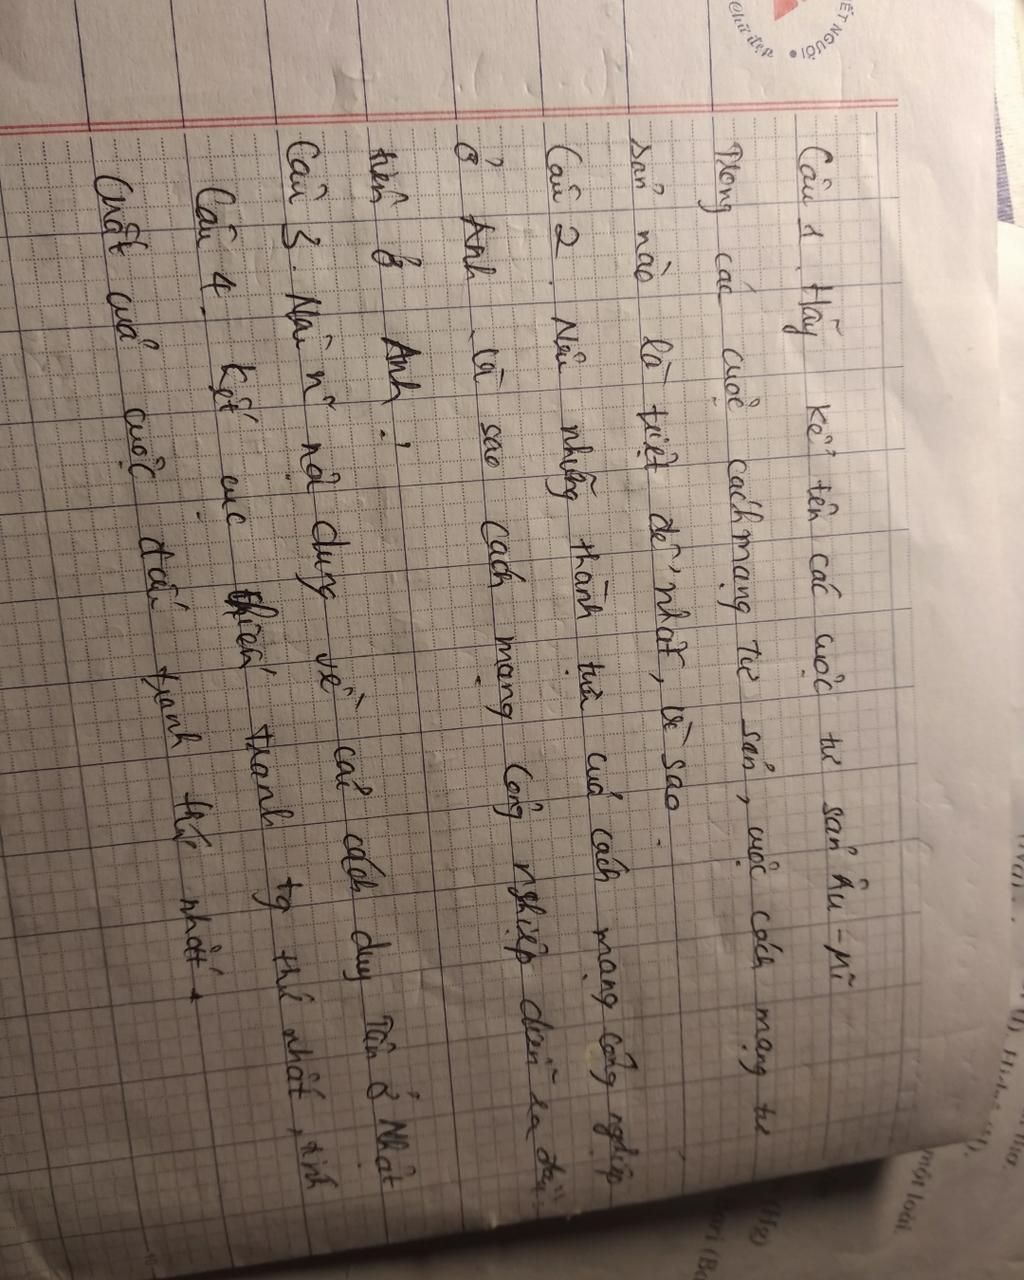 Câu 1. Hãy kể tên các cuộc tư sản Âu - Mĩ
Trong các cuộc cách mạng tư sản, cuộc cách mạng tư
sản nào là triệt để nhất, vì sao.
Câu 2. Nêu những thành tựu của cách mạng công nghiệp
ở Anh. Vì sao cách mạng công nghiệp diễn ra đầu
tiên ở Anh!
Câu 3. nội dung về cải cách duy Tân ở Nhật
Câu 4. kết cục chiến tranh tg thứ nhất, tính
chất của cuộc đấu tranh thứ nhất.
ẾT NGƯỜI
Chữ đẹp
một loài.